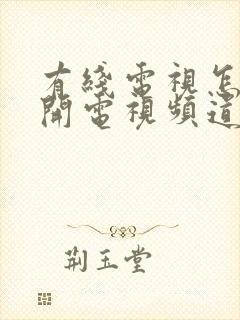 有綫電視怎
開電視頻道
荆玉堂